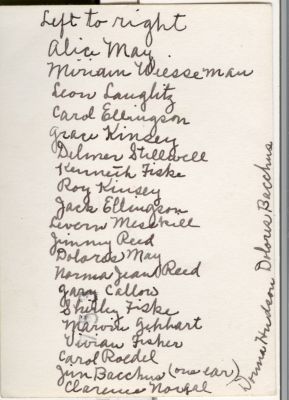 Left to right
Alice May
Miriam Wiesseman
Leon Lauglitz
Carol Ellingson
Grace Kinsey
Delmer Stillwell
Kenneth Fiske
Roy Kinsey
Jack Ellingson
Levern
Jimmy Reed
Dolores May
Norma Jean Reed
Gary Callow
Shirley Fiske
Marvin Gebhart
Vivian Fisher
Carol Roedel
Jim Bacchus (one ear)
Clarence
Donna Hudson Dolores Bacchus